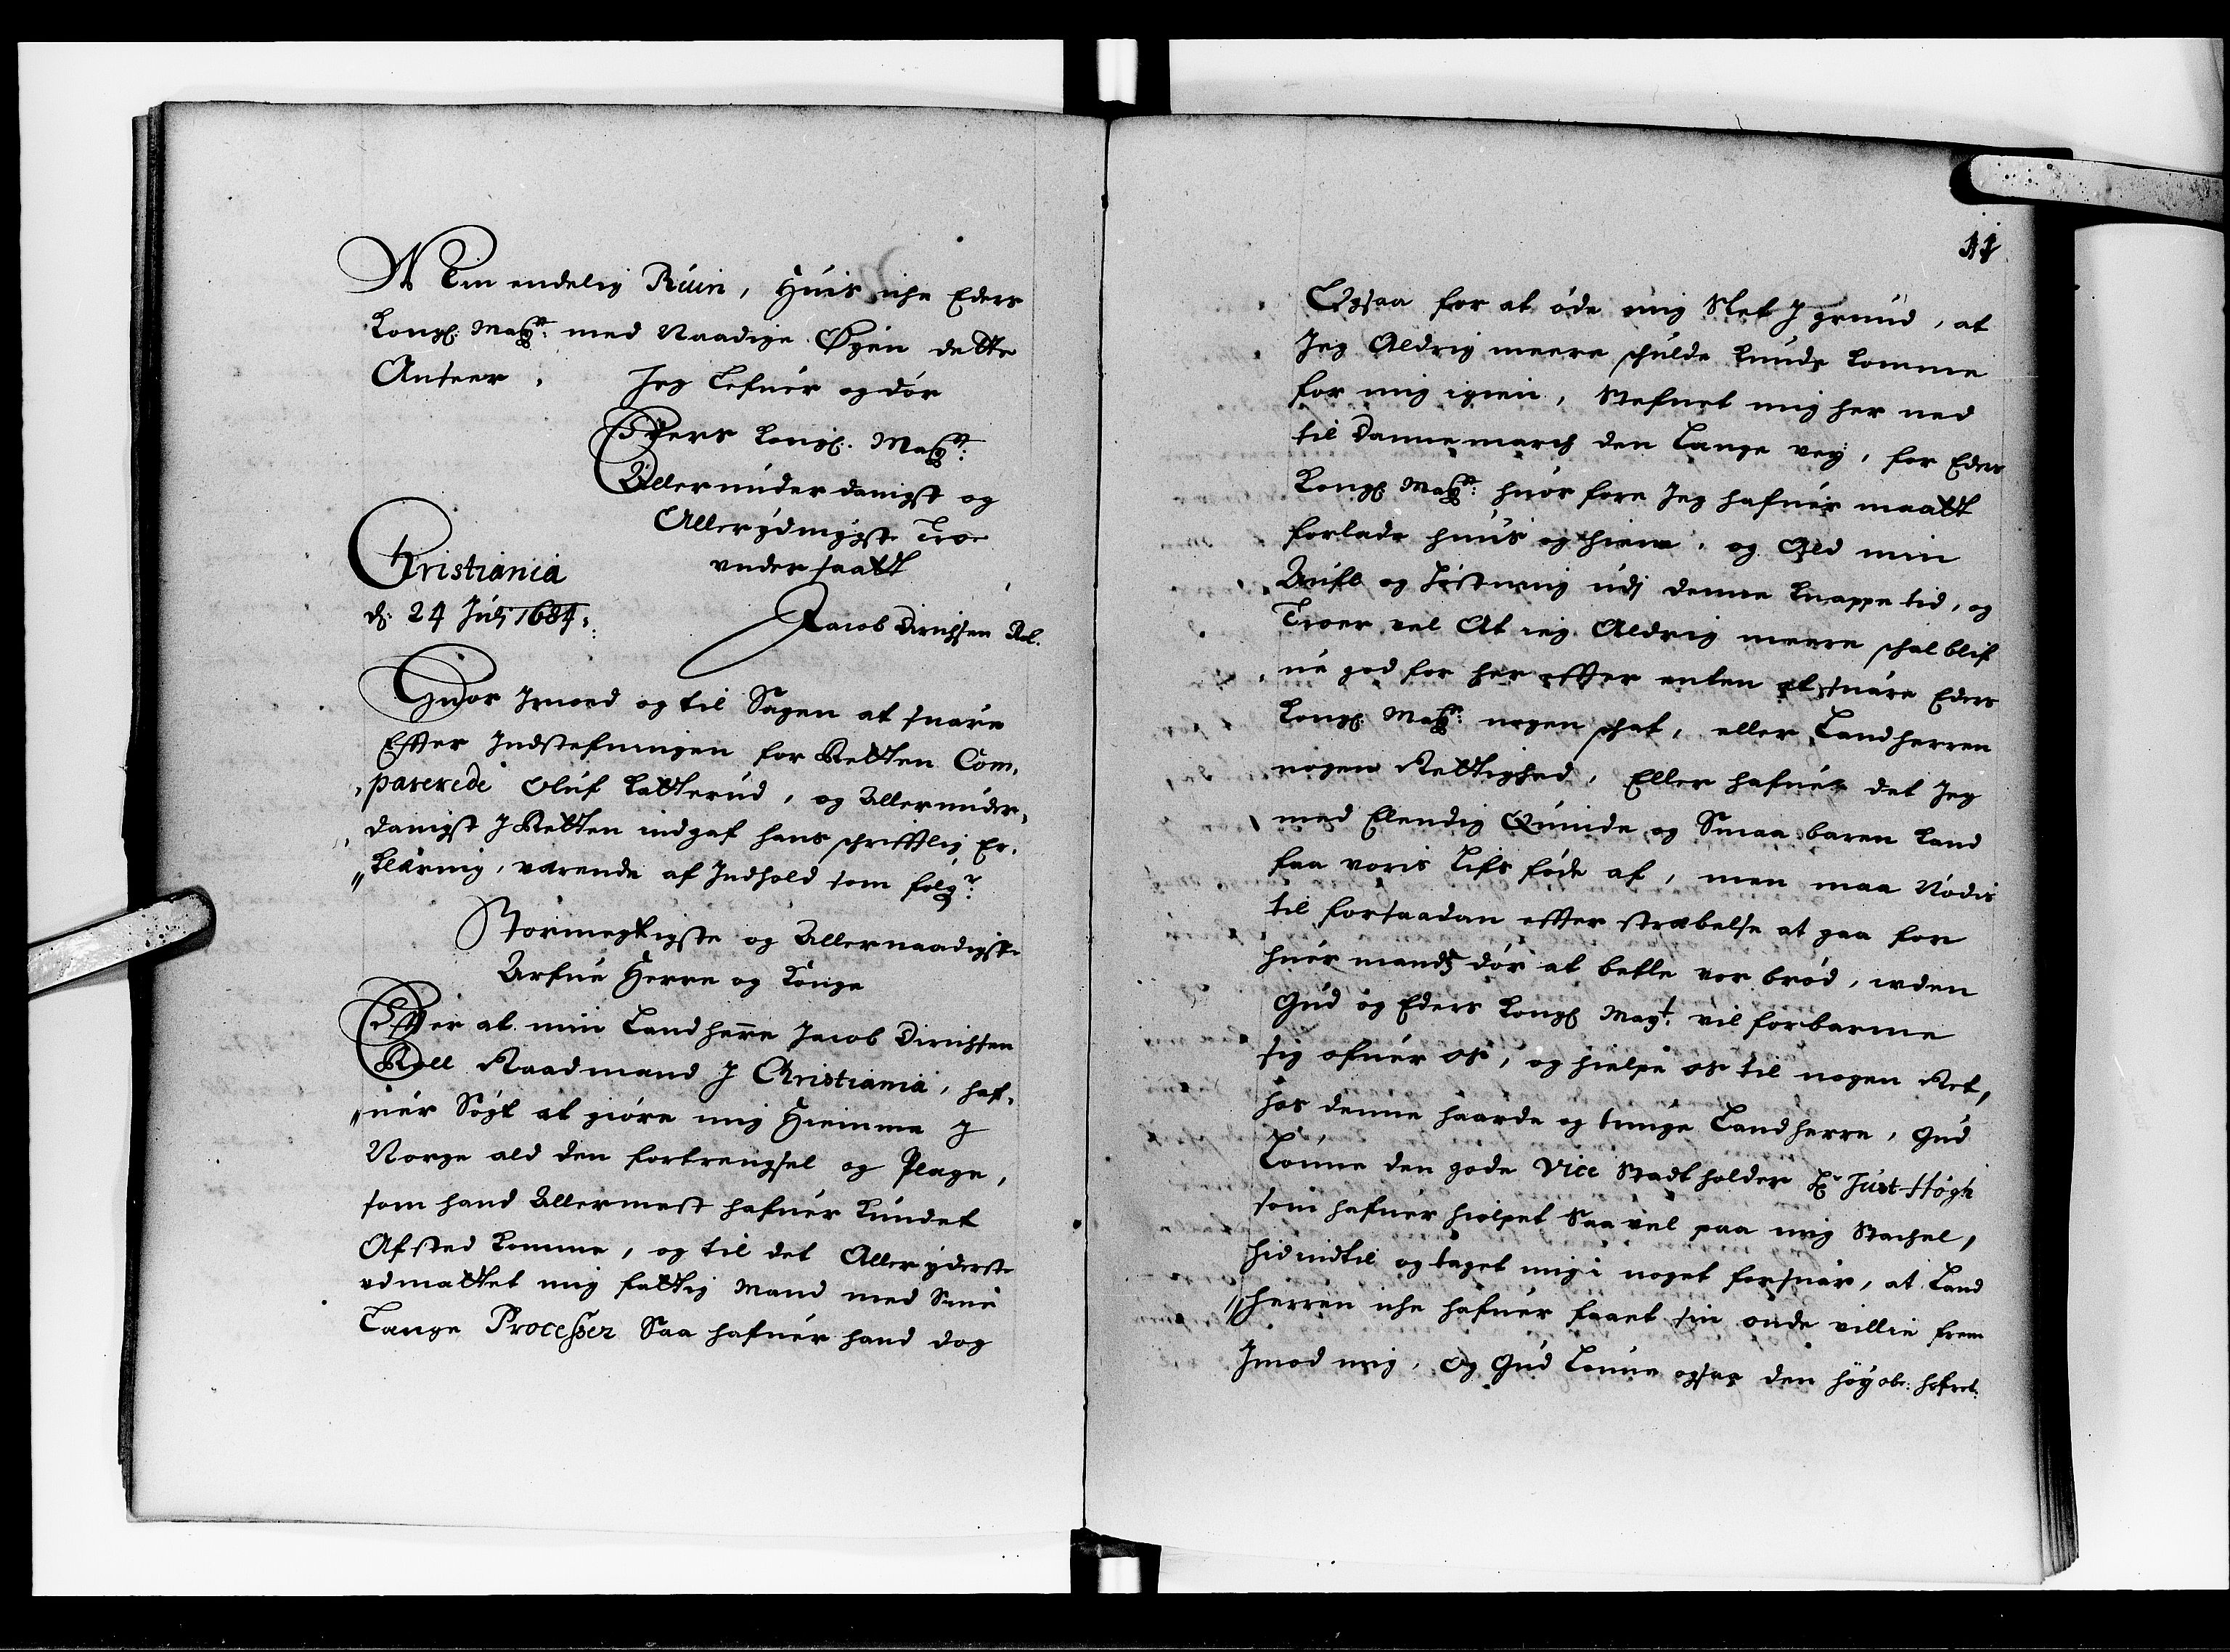 Min endelig Ruin, Huis iche Eders
Kongl: Maÿtt: med Naadige Øÿen dette
Anseer, Jeg Lefuer og dør
Eders Kongl: Maÿtt:
Allerunderdanigst og
Allerydmygste Troe
undersaatt
Christiania
d: 24 Julj 1684:
Jacob Dirichsen Rol.
Huor Imoed og til Sagen at suare
Effter Indstefningen for Retten Com-
parerede Oluf Katterud, og Allerunder-
danigst J Retten indgaf hans schrifftlig Er-
klæring, værende af Indhold som følgr:
Stormegtigste og Allernaadigste
Arfue Herre og Konge
Effter at min Landherre Jacob Dirichsen
Roll Raadmand J Christiania, haf-
uer Søgt at giøre mig Hiemme J
Norge ald den fortrengsel og Plage,
som hand Allermest hafuer kundet
Afsted komme, og til det Alleryderste
udmattet mig fattig Mand med Sine
Lange Processer Saa hafuer hand dog
11
Ogsaa for at øde mig Slet J grund, at
Jeg Aldrig meere schulde kunde komme
for mig igien, Stefnet mig her ned
til Dannemarch den Lange vey, for Eders
Kongl: Maÿtt: huor fore Jeg hafuer maatt
forlade huus og hiem, og Ald min
Aufl og Høstning udj denne knappe tid, og
Troer vel At ieg Aldrig meere schal blif
ue god for her effter enten at suare Eders
Kongl: Maÿtt: nogen schat, eller Landherren
nogen Rettighed, Eller hafuer det Jeg
med Elendig Quinde og Smaa baren kand
faa voris Lifs føde af, men maa Nødis
til forsaadan effter stræbelse at gaa for
huer mands dør at betle vor brød, uden
Gud og Eders Kongl: Mayt: vil forbarme
sig ofuer os, og hielpe os til nogen Ret,
hos denne haarde og tunge Landherre, Gud
Lønne den gode Vice Stadtholder Hr Just Høgh
som hafuer hiolpet Saa vel paa mig Stachel,
hidindtil og taget mig i noget forsuar, at Land
herren iche hafuer faaet sin onde villie frem
Jmod mig, Og Gud Lønne ogsaa den høy obr: hofret: